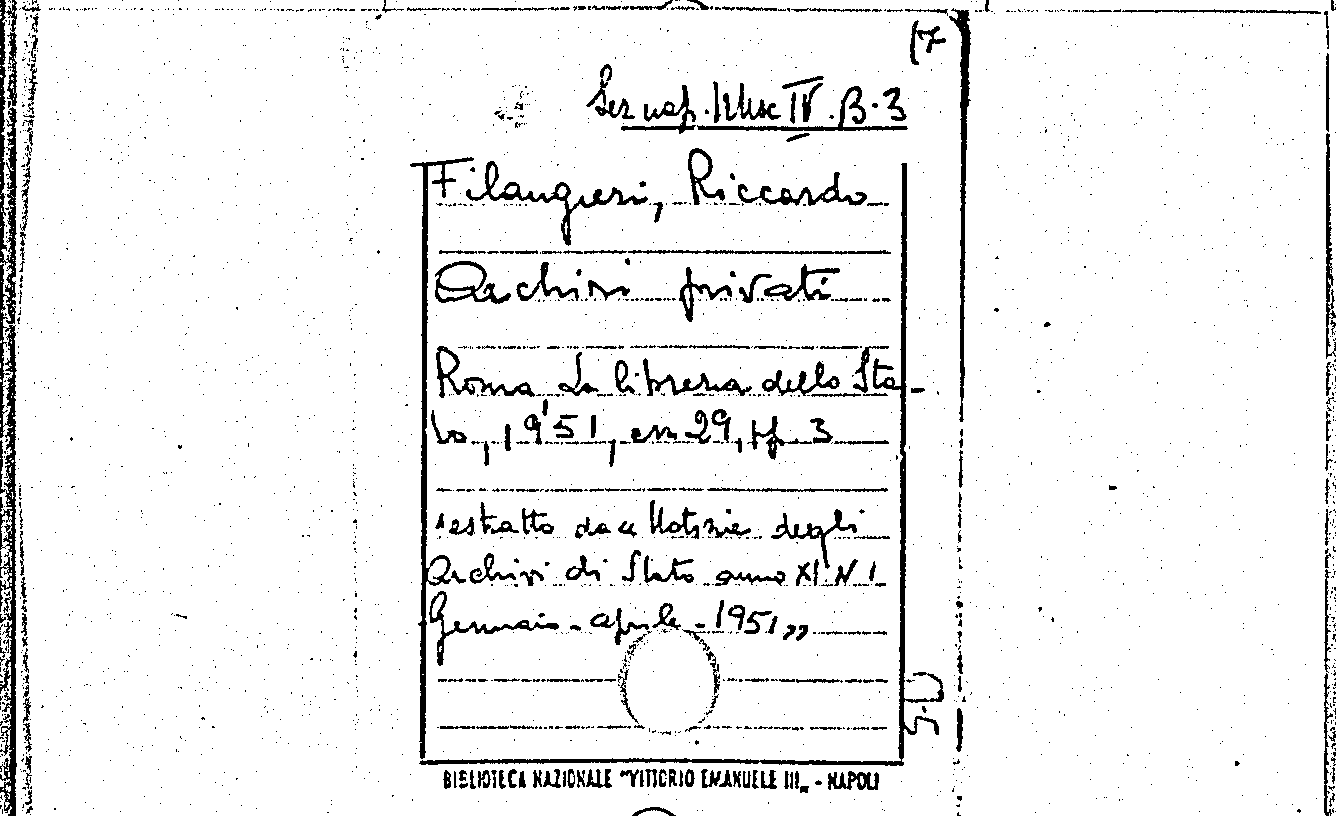 (7
Sez nap. Misc IV. B. 3
Filangieri, Riccardo
Archivi privati
Roma La libreria dello Sta-
to, 1951, cm 29, pp. 3
estratto da "Notizie degli
Archivi di Stato anno XI N 1
Gennaio - aprile - 1951"
S.D
BIBLIOTECA NAZIONALE "VITTORIO EMANUELE III" - NAPOLI